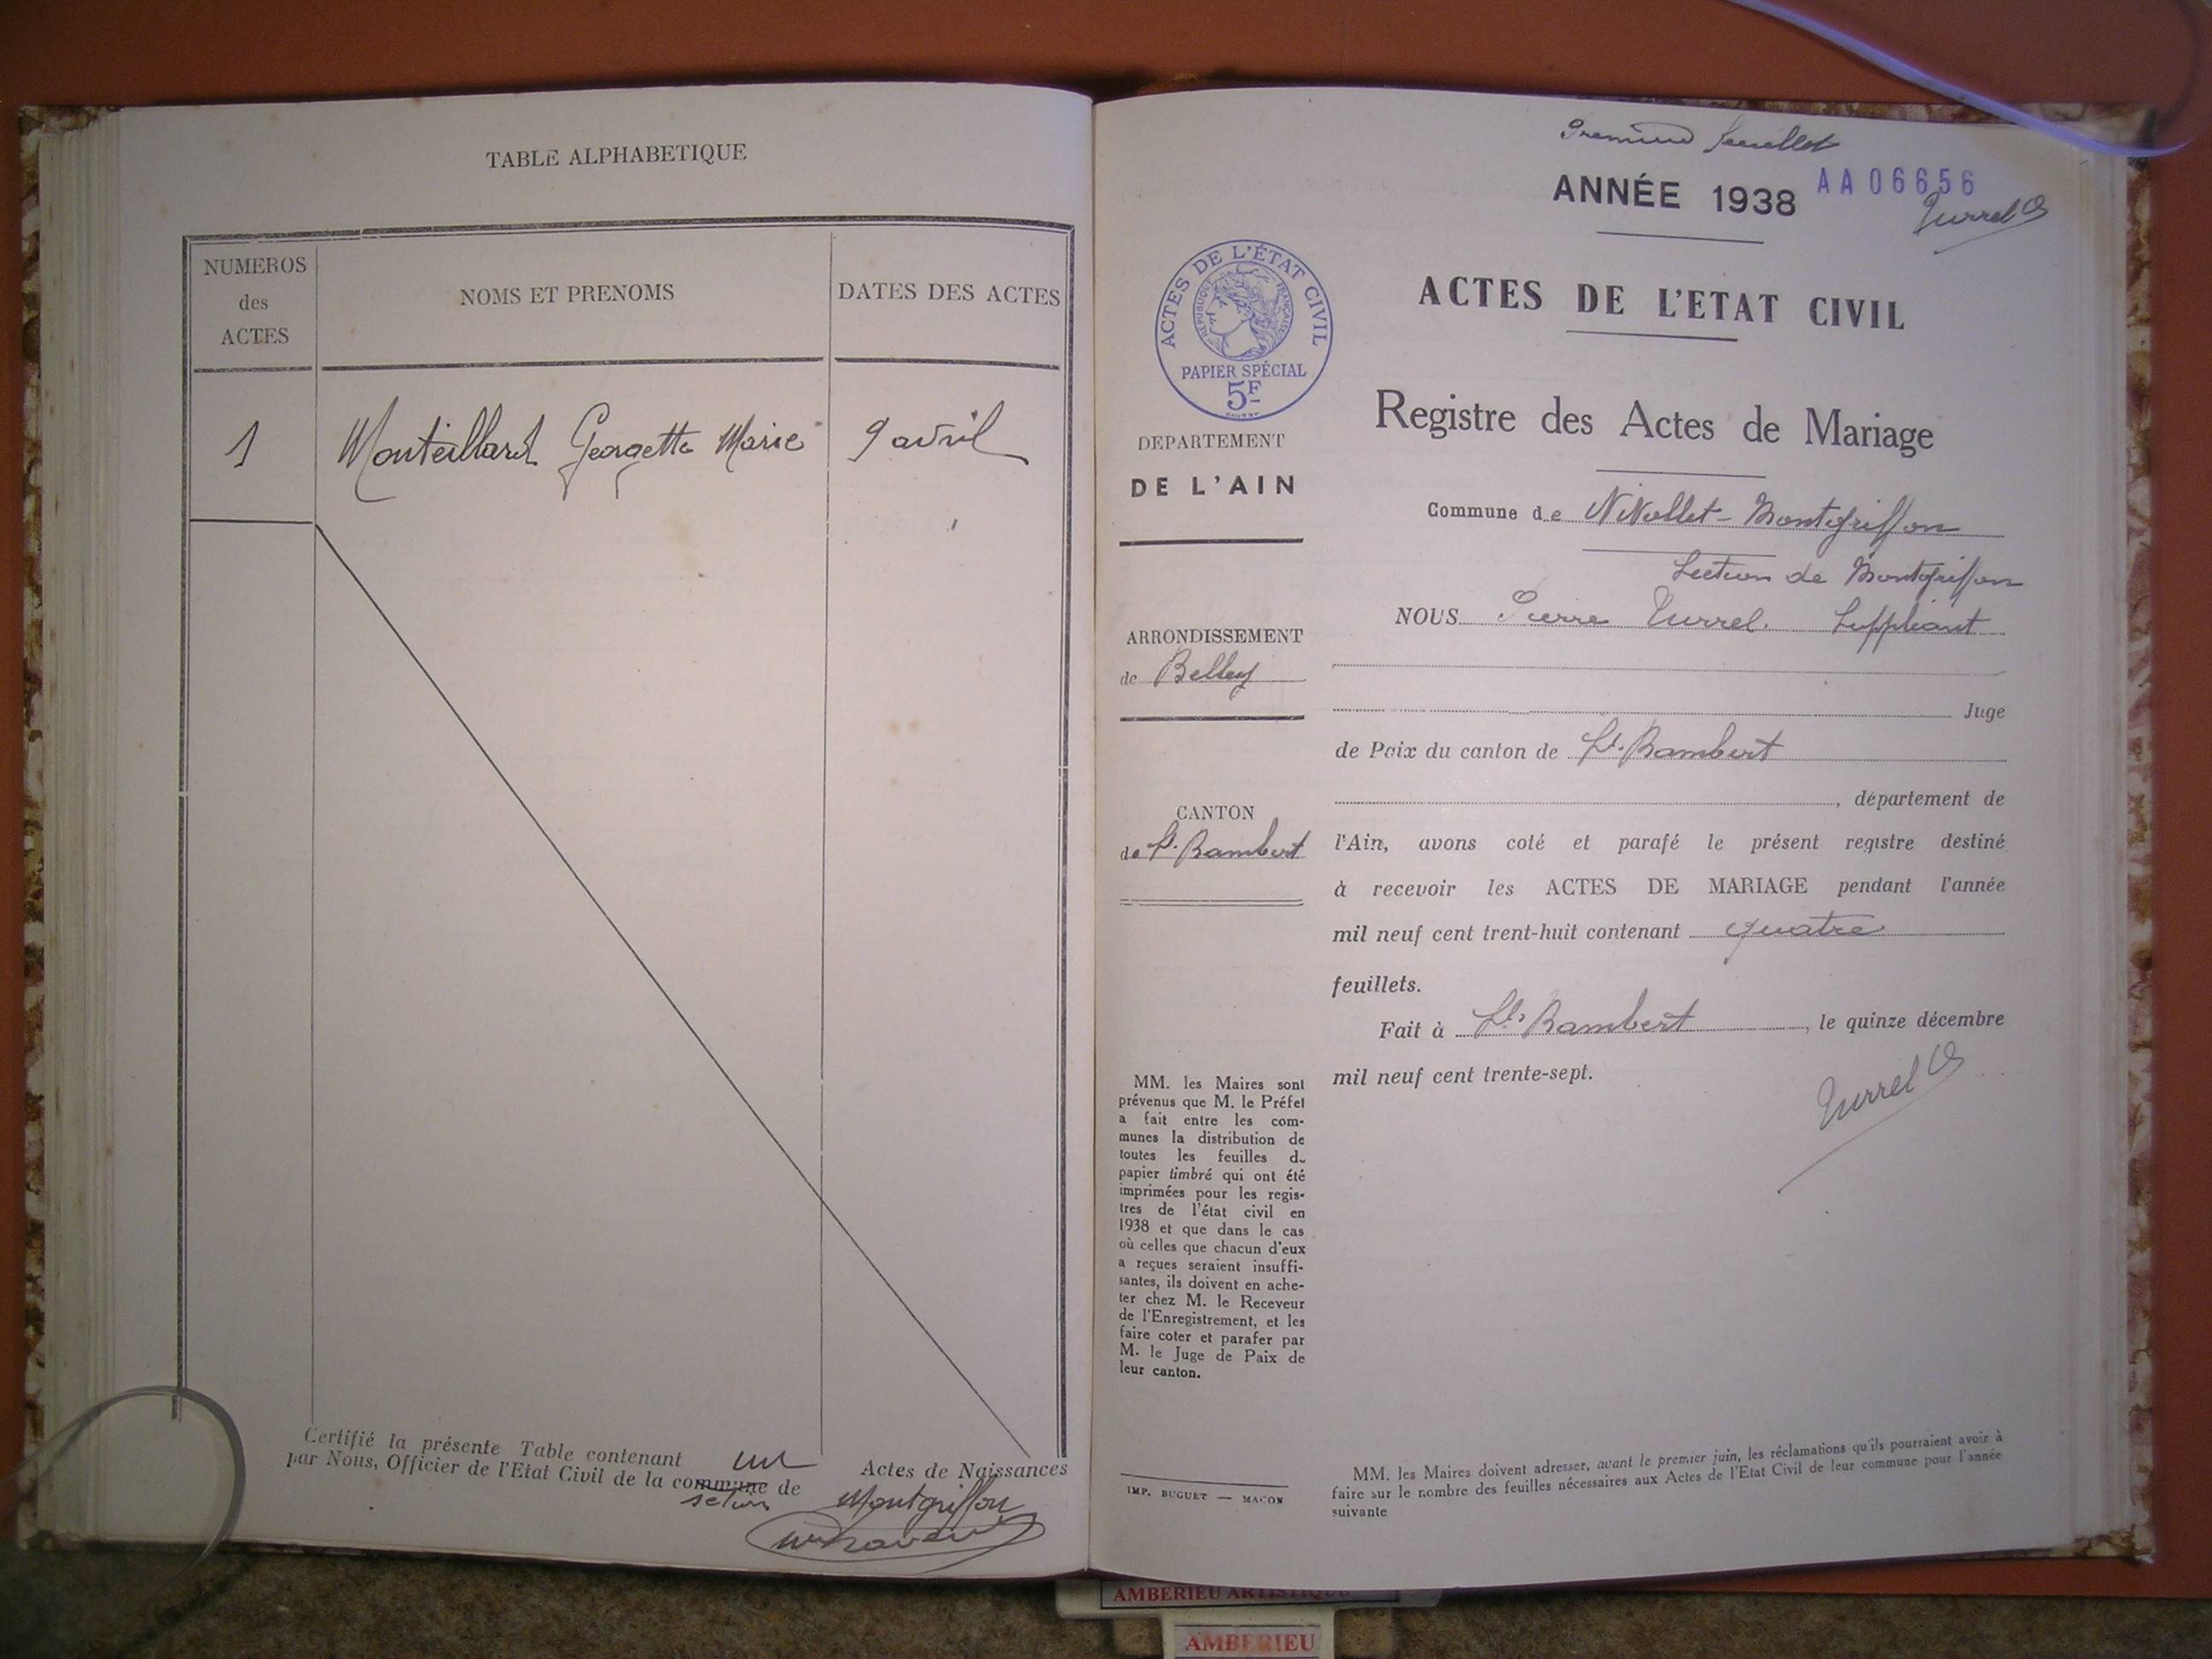 TABLE ALPHABETIQUE
NUMEROS
des
ACTES
NOMS ET PRENOMS
DATES DES ACTES
1 Monteillard Georgette Marie 9 avril
Certifié la présente Table contenant un Actes de Naissances
par Nous, Officier de l'Etat Civil de la commune de Montgriffon
Premier feuillet
ANNÉE 1938
AA06656
Turrel
ACTES DE L'ÉTAT CIVIL
RÉPUBLIQUE FRANÇAISE
PAPIER SPÉCIAL
5F
ACTES DE L'ETAT CIVIL
Registre des Actes de Mariage
DEPARTEMENT
DE L'AIN
Commune de Nivollet-Montgriffon
Section de Montgriffon
ARRONDISSEMENT
de Belley
NOUS Pierre Turrel. Suppléant
Juge
de Paix du canton de St. Rambert
CANTON
de St. Rambert
, département de
l'Ain, avons coté et parafé le présent registre destiné
à recevoir les ACTES DE MARIAGE pendant l'année
mil neuf cent trent-huit contenant quatre
feuillets.
Fait à St. Rambert, le quinze décembre
mil neuf cent trente-sept.
Turrel
MM. les Maires sont
prévenus que M. le Préfet
a fait entre les com-
munes la distribution de
toutes les feuilles de
papier timbré qui ont été
imprimées pour les regis-
tres de l'état civil en
1938 et que dans le cas
où celles que chacun d'eux
a reçues seraient insuffi-
santes, ils doivent en ache-
ter chez M. le Receveur
de l'Enregistrement, et les
faire coter et parafer par
M. le Juge de Paix de
leur canton.
IMP. BUGUET — MACON
MM. les Maires doivent adresser, avant le premier juin, les réclamations qu'ils pourraient avoir à
faire sur le nombre des feuilles nécessaires aux Actes de l'Etat Civil de leur commune pour l'année
suivante
AMBERIEU ARTISTIQUE
AMBERIEU